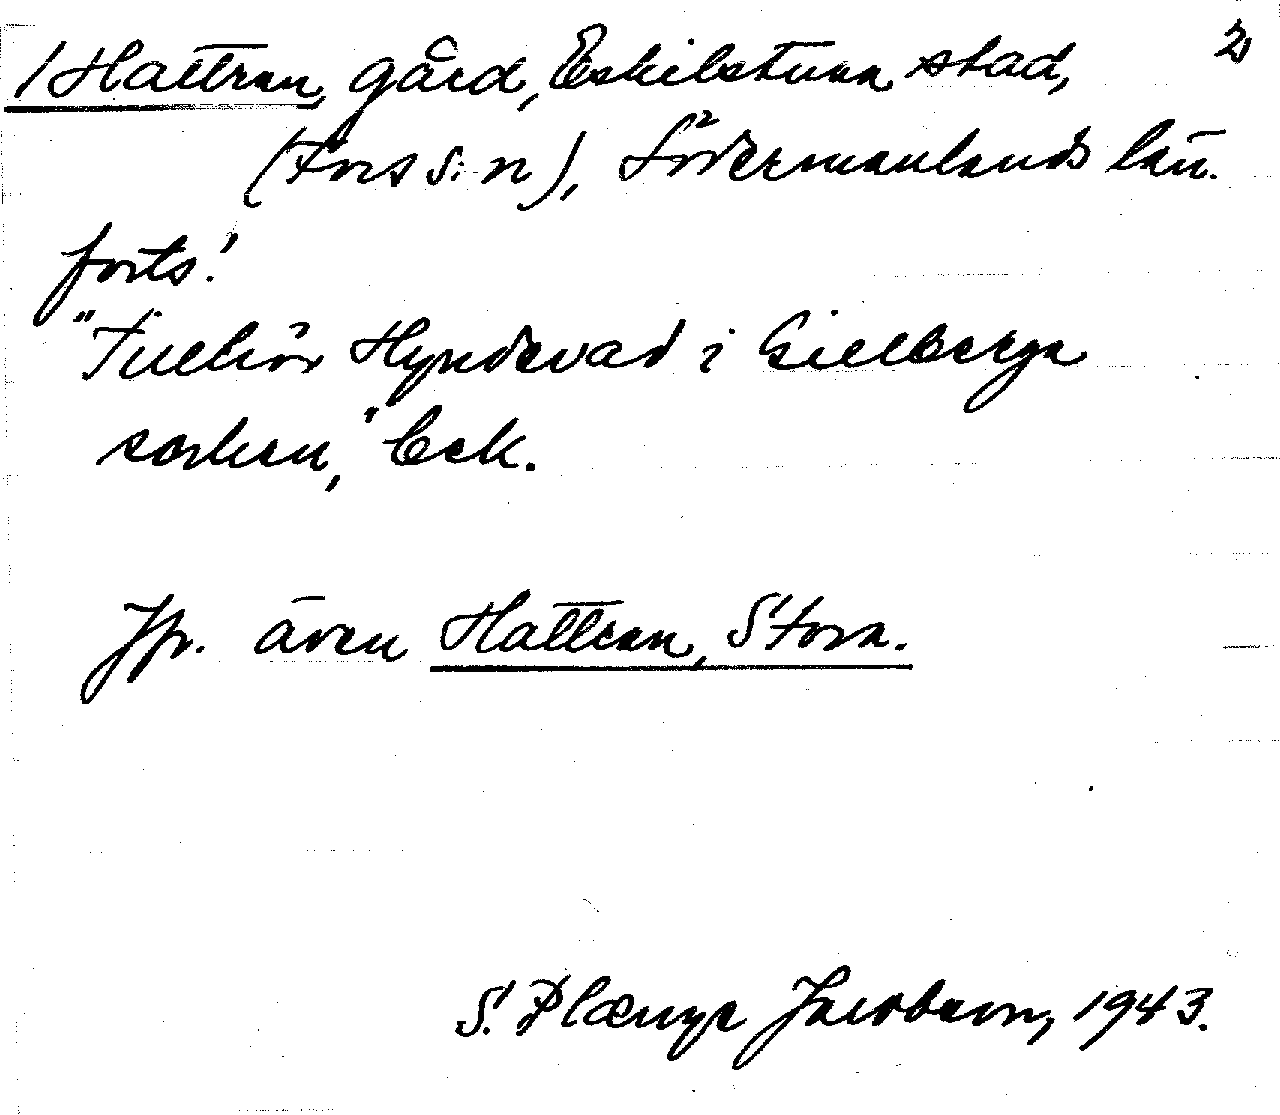 /Hattran, gård, Eskilstuna stad, 2)
(Fors s:n), Södermanlands län.
forts!
"Tillhör Hyndevad i Gillberga
socken," bek.
Jfr. även Hattran, Stora.
S. Plænge Jacobson, 1943.